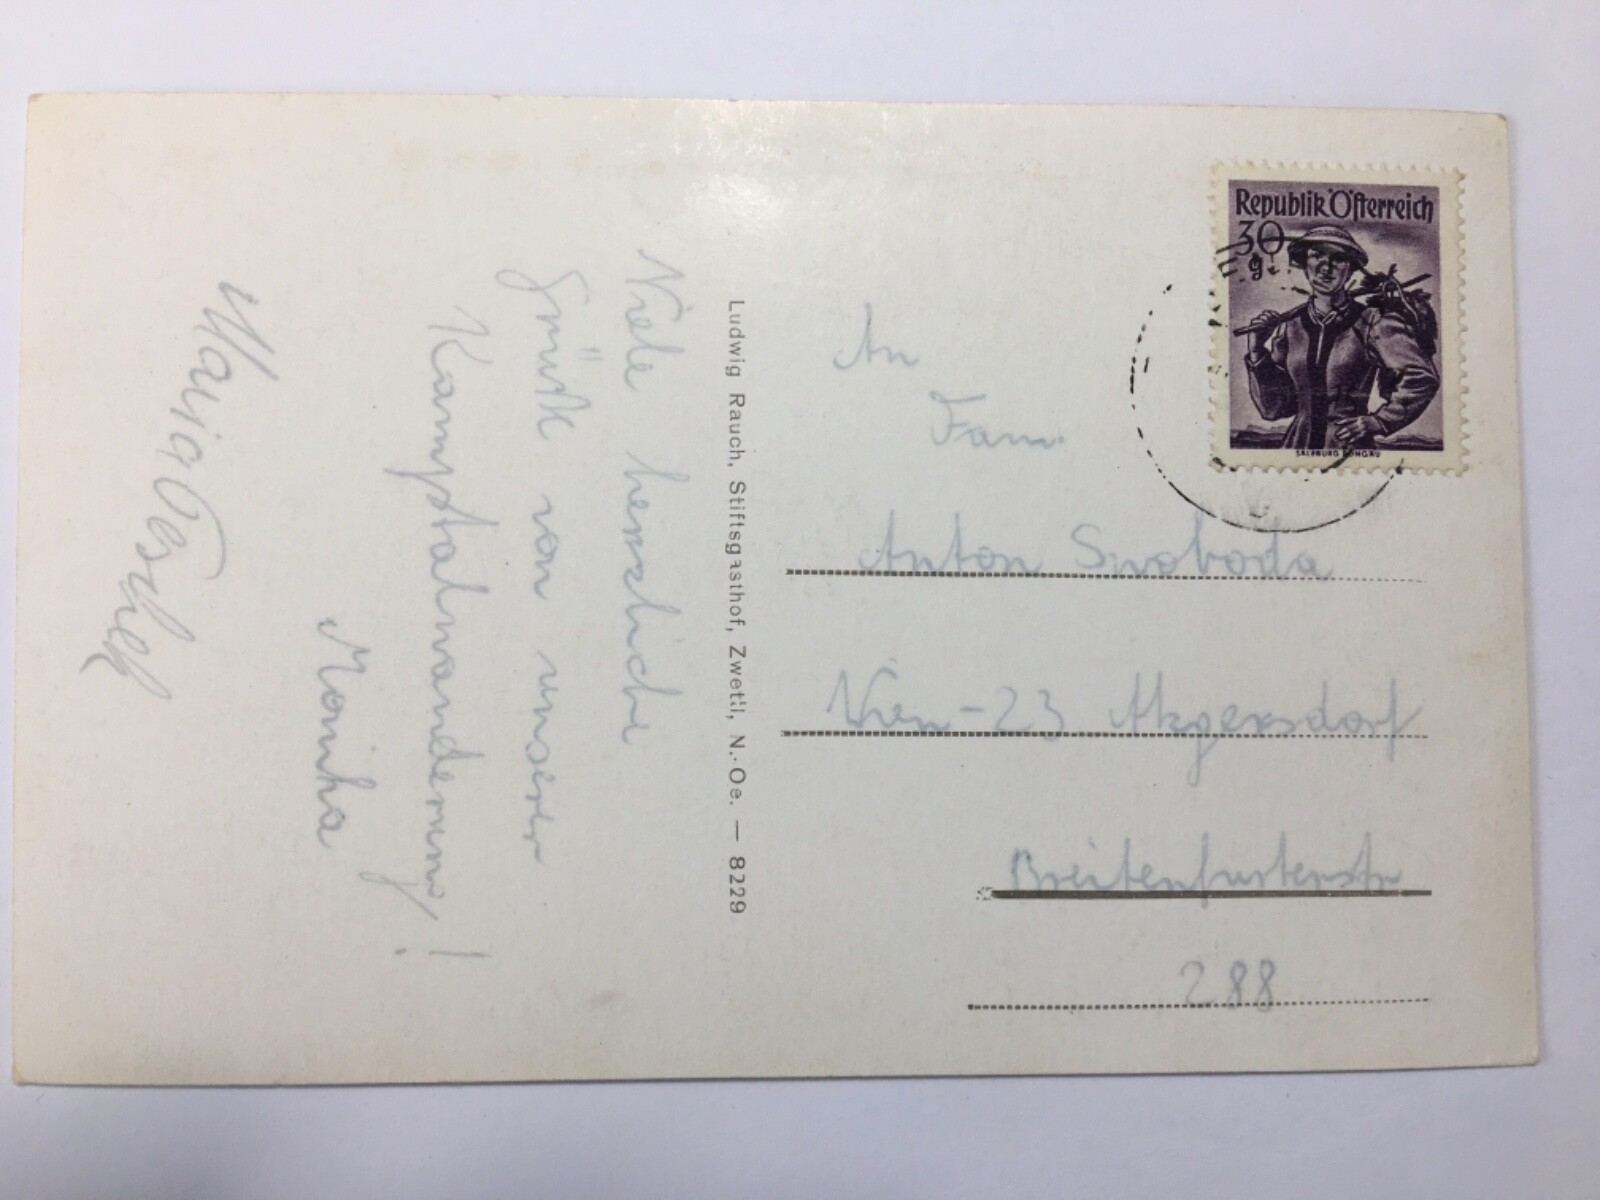 Viele herzliche
Grüße von unserer
Kamptalwanderung!
Monika
Maria
Ludwig Rauch, Stiftsgasthof, Zwettl, N.-Oe. — 8229
Republik Österreich
30
g
SALZBURG PONGAU
An
Fam.
Anton Swoboda
Wien-23 Atzgersdorf
Breitenfurterstr
288